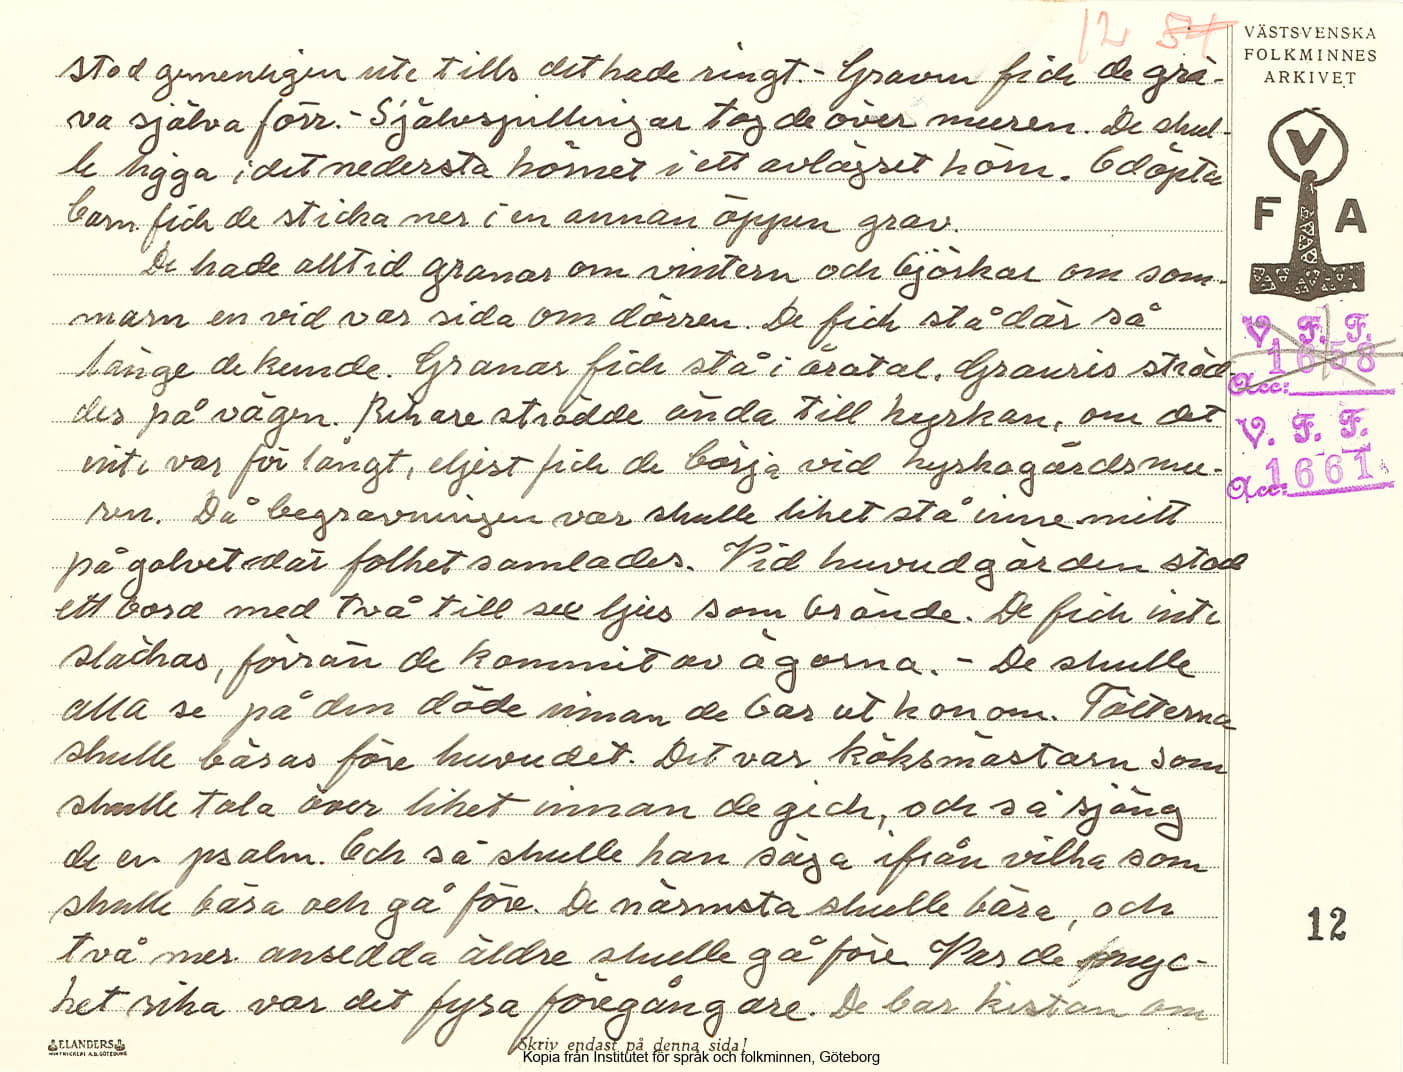 12 51
VÄSTSVENSKA
FOLKMINNES
ARKIVET
stod gemenligen ute tills det hade ringt. - Graven fick de grä-
va själva förr. - Självspillingar tog de över muren. De skul-
le ligga i det nedersta hörnet i ett avlägset hörn. Odöpta
barn fick de sticka ner i en annan öppen grav.
De hade alltid granar om vintern och björkar om som-
marn en vid var sida om dörren. De fick stå där så
länge de kunde. Granar fick stå i åratal. Granris ströd-
des på vägen. Rikare strödde ända till kyrkan, om det
inte var för långt, eljest fick de börja vid kyrkogårdsmu-
ren. Då begravningen var skulle liket stå inne mitt
på golvet där folket samlades. Vid huvudgärden stod
ett bord med två till sex ljus som brände. De fick inte
släckas, förrän de kommit av ägorna. - De skulle
alla se på den döde innan de bar ut honom. Fötterna
skulle bäras före huvudet. Det var köksmästarn som
skulle tala över liket innan de gick, och så sjöng
de en psalm. Och så skulle han säga ifrån vilka som
skulle bära och gå före. De närmsta skulle bära, och
två mer ansedda äldre skulle gå före. Var de myc-
ket rika var det fyra föregångare. De bar kistan om
V
F A
V. F. F.
1658
Acc:
V. F. F.
Acc: 1661
12
ELANDERS
BOKTRYCKERI A.B. GÖTEBORG
Skriv endast på denna sida!
Kopia från Institutet för språk och folkminnen, Göteborg